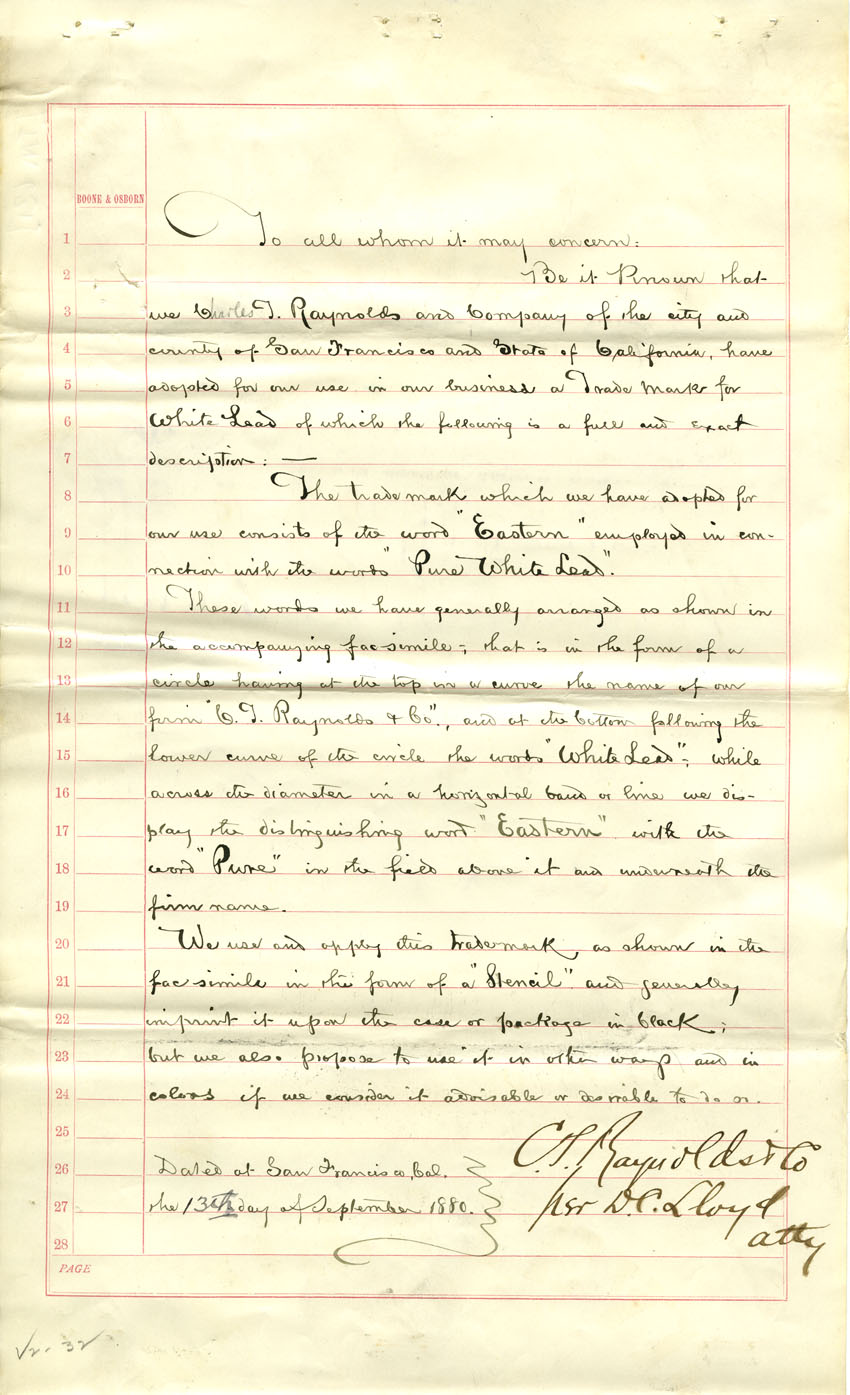 BOONE & OSBORN
1 To all whom it may concern:
2 Be it Known that
3 we Charles T. Raynolds and Company of the city and
4 county of San Francisco and State of California, have
5 adopted for our use in our business a Trade Mark for
6 White Lead of which the following is a full and exact
7 description: —
8 The trademark which we have adopted for
9 our use consists of the word "Eastern" employed in con-
10 nection with the words "Pure White Lead".
11 These words we have generally arranged as shown in
12 the accompanying fac-simile; that is in the form of a
13 circle having at the top in a curve the name of our
14 firm "C. T. Raynolds & Co"., and at the bottom following the
15 lower curve of the circle the words "White Lead"; while
16 across the diameter in a horizontal band or line we dis-
17 play the distinguishing word "Eastern" with the
18 word "Pure" in the field above it and underneath the
19 firm name.
20 We use and apply this trademark, as shown in the
21 fac simile in the form of a "Stencil" and generally
22 imprint it upon the case or package in black;
23 but we also propose to use it in other ways and in
24 colors if we consider it advisable or desirable to do so.
25 C. T. Raynolds & Co
26 Dated at San Francisco, Cal.
27 the 13th day of September 1880. per D. C. Lloyd
28 atty
PAGE
V2. 32